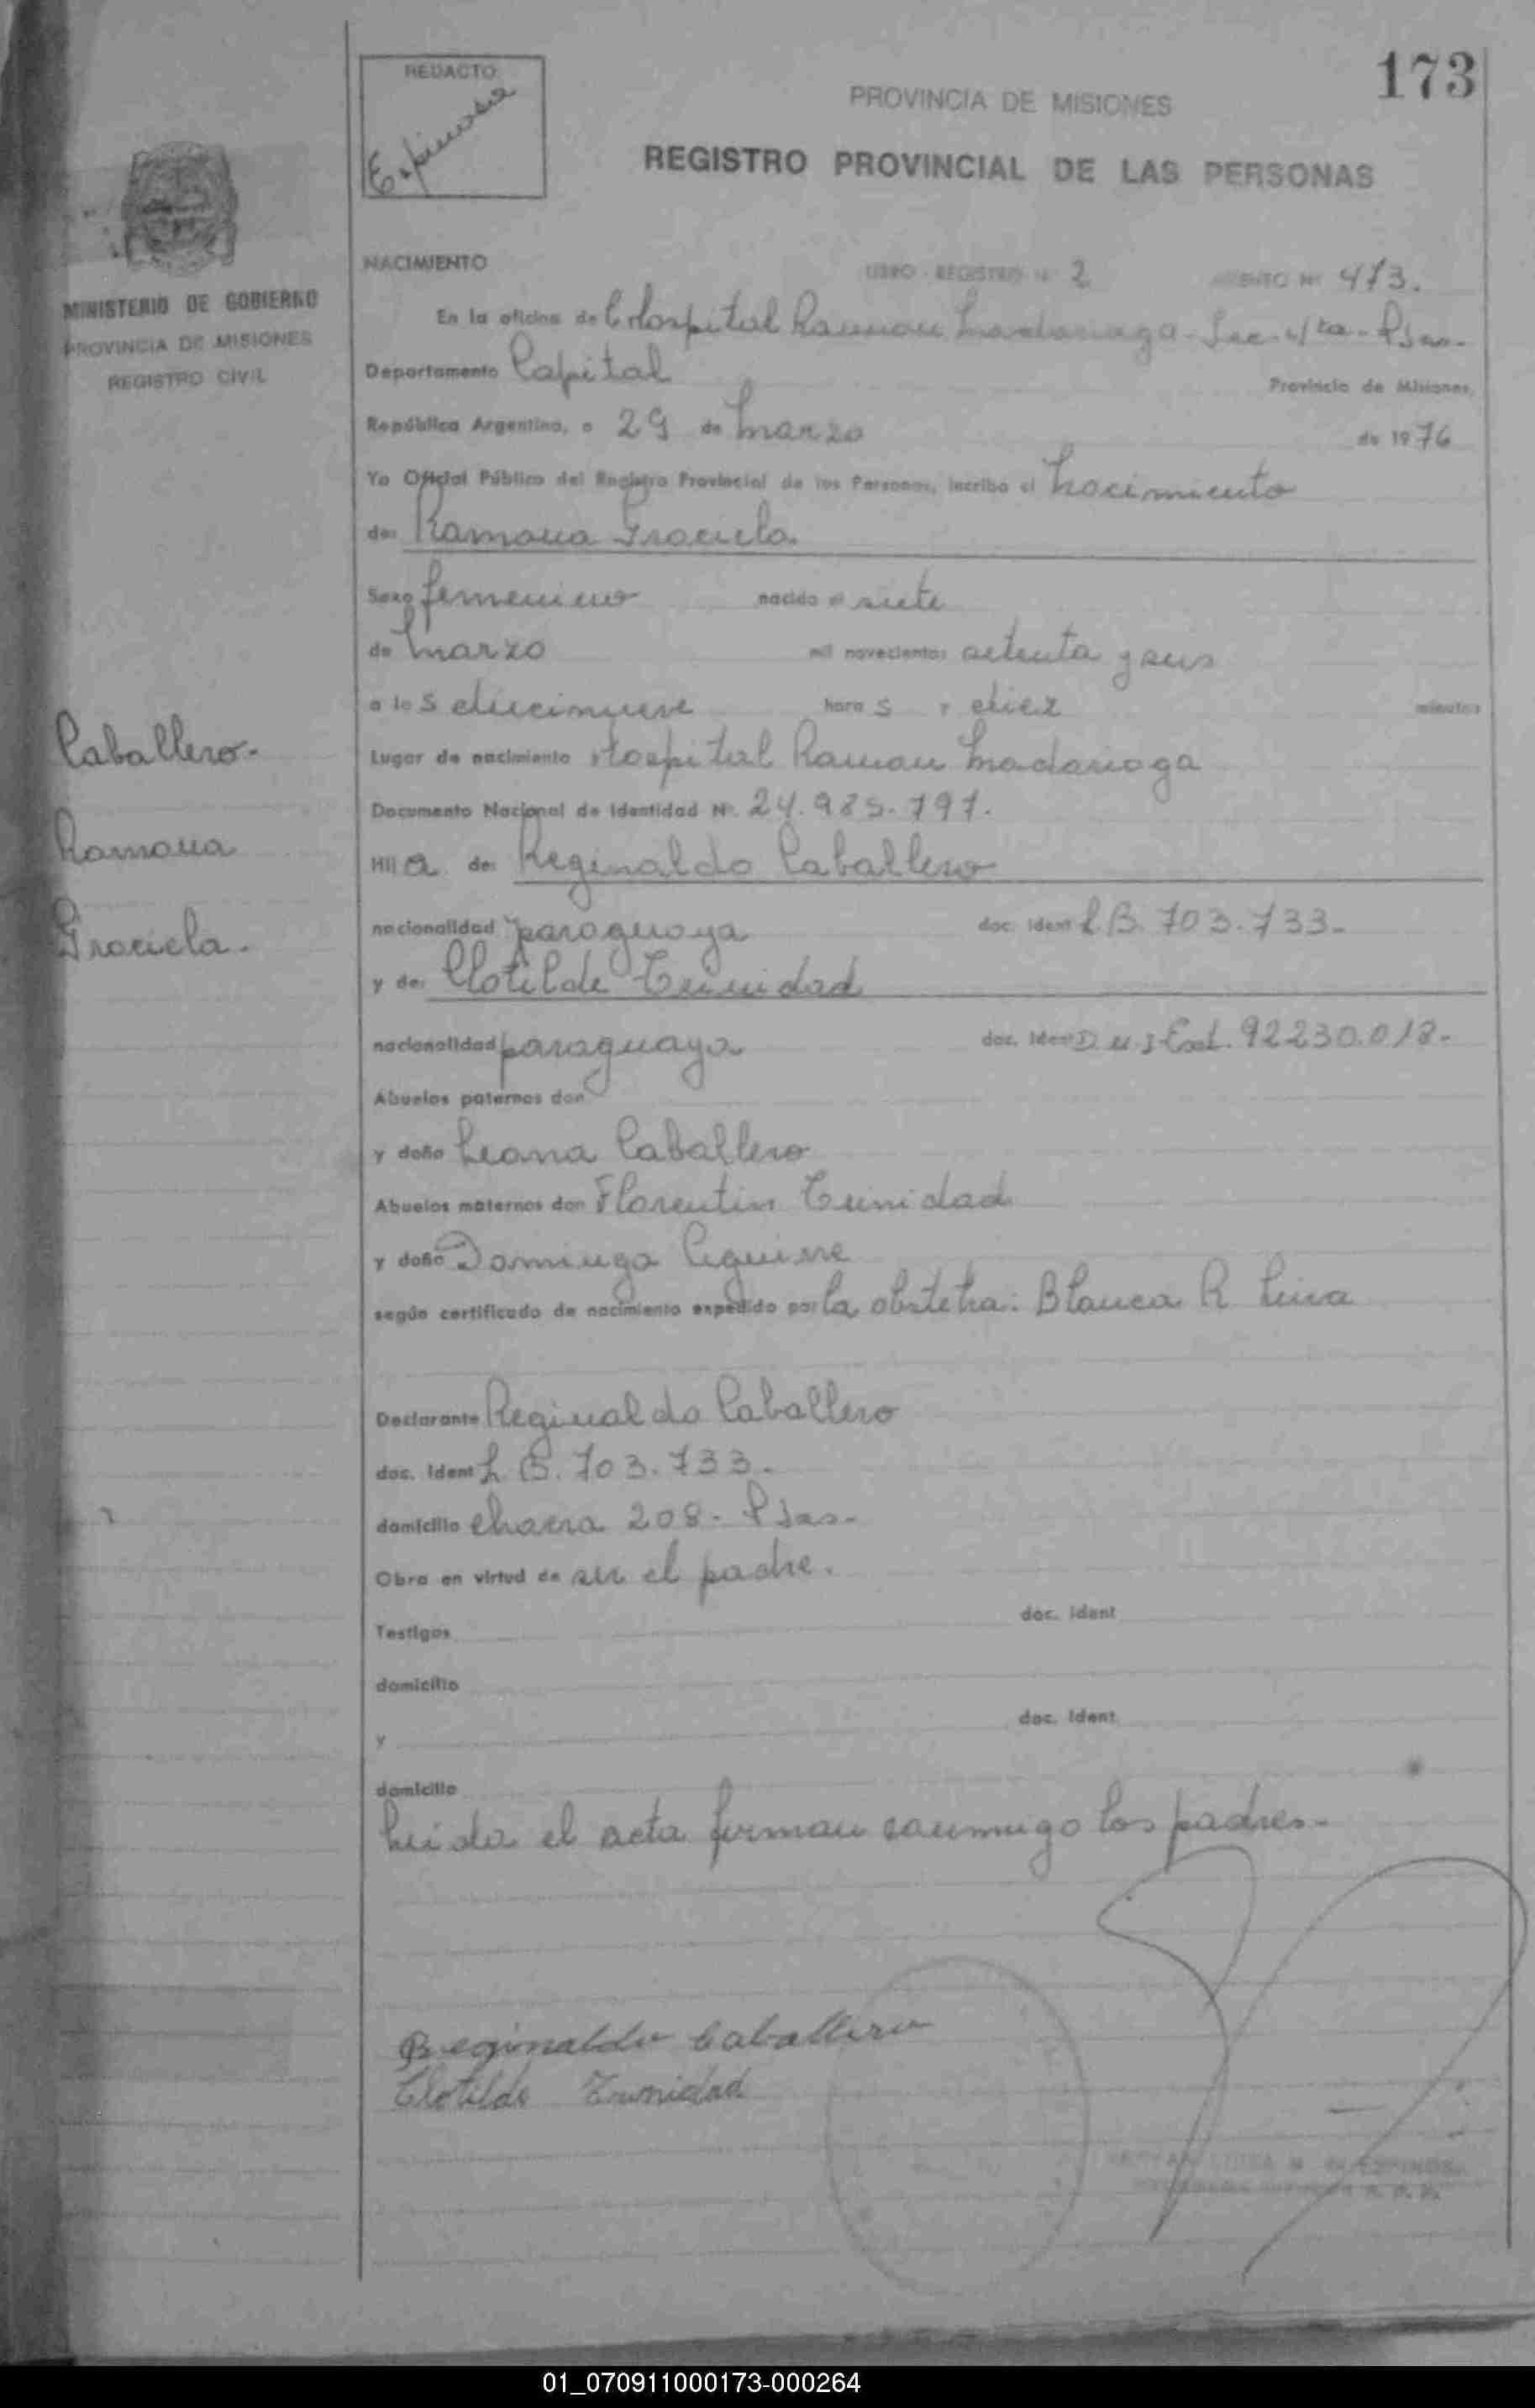 173
REDACTO
Espinosa
PROVINCIA DE MISIONES
REGISTRO PROVINCIAL DE LAS PERSONAS
MINISTERIO DE GOBIERNO
PROVINCIA DE MISIONES
REGISTRO CIVIL
NACIMIENTO LIBRO - REGISTRO Nº 2 ASIENTO Nº 473.
En la oficina de Hospital Ramon Madariaga - Sec. 4ta - Psas.
Departamento Capital Provincia de Misiones,
República Argentina, a 29 de Marzo de 1976
Yo Oficial Público del Registro Provincial de las Personas, inscribo el Nacimiento
de: Ramona Graciela
Sexo femenino nacido el siete
de Marzo mil novecientos setenta y seis
a las diecinueve horas y diez minutos
Lugar de nacimiento Hospital Ramon Madariaga
Documento Nacional de Identidad Nº. 24.985.797.
Hija de: Reginaldo Caballero
nacionalidad paraguaya doc. ident L.B. 703.733-
y de: Clotilde Trinidad
nacionalidad paraguaya doc. ident 92230.018-
Abuelos paternos don
y doña Leona Caballero
Abuelos maternos don Florentin Trinidad
y doña Dominga Aguirre
según certificado de nacimiento expedido por la obstetra: Blanca R
Declarante Reginaldo Caballero
doc. ident L.B. 703.733-
domicilio chacra 208- Psas-
Obra en virtud de ser el padre.
Testigos doc. ident
domicilio
y doc. ident
domicilio
Leida el acta firman conmigo los padres-
Caballero-
Ramona
Graciela-
Reginaldo Caballero
Clotilde Trinidad
01_070911000173-000264